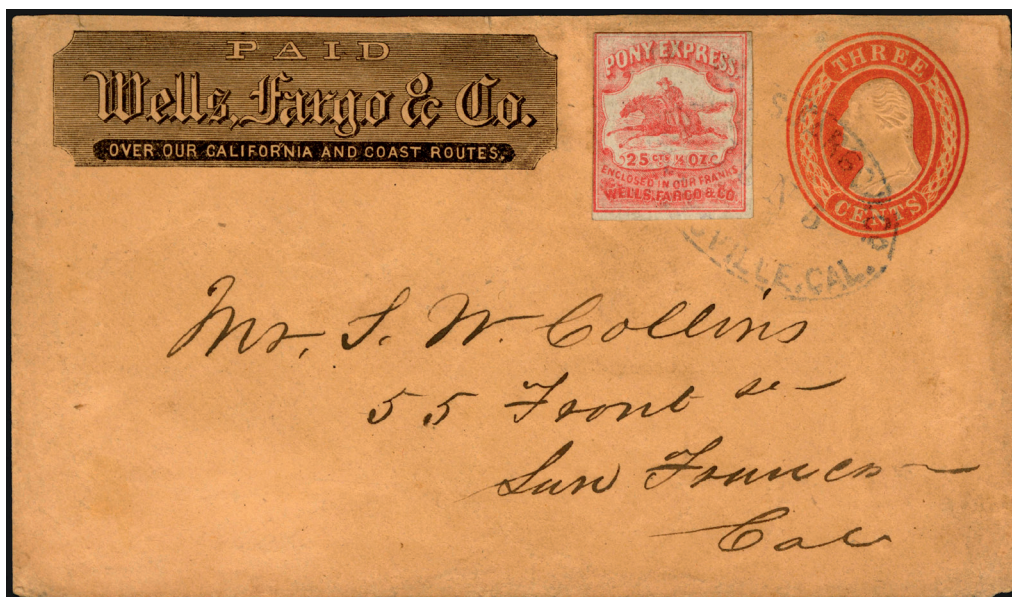 PAID
Wells, Fargo & Co.
OVER OUR CALIFORNIA AND COAST ROUTES.
PONY EXPRESS
25 Cts ½ OZ
ENCLOSED IN OUR FRANKS
WELLS, FARGO & CO.
THREE
CENTS
CAL.
Mr. S. W. Collins
55 Front st
San Franco
Cal